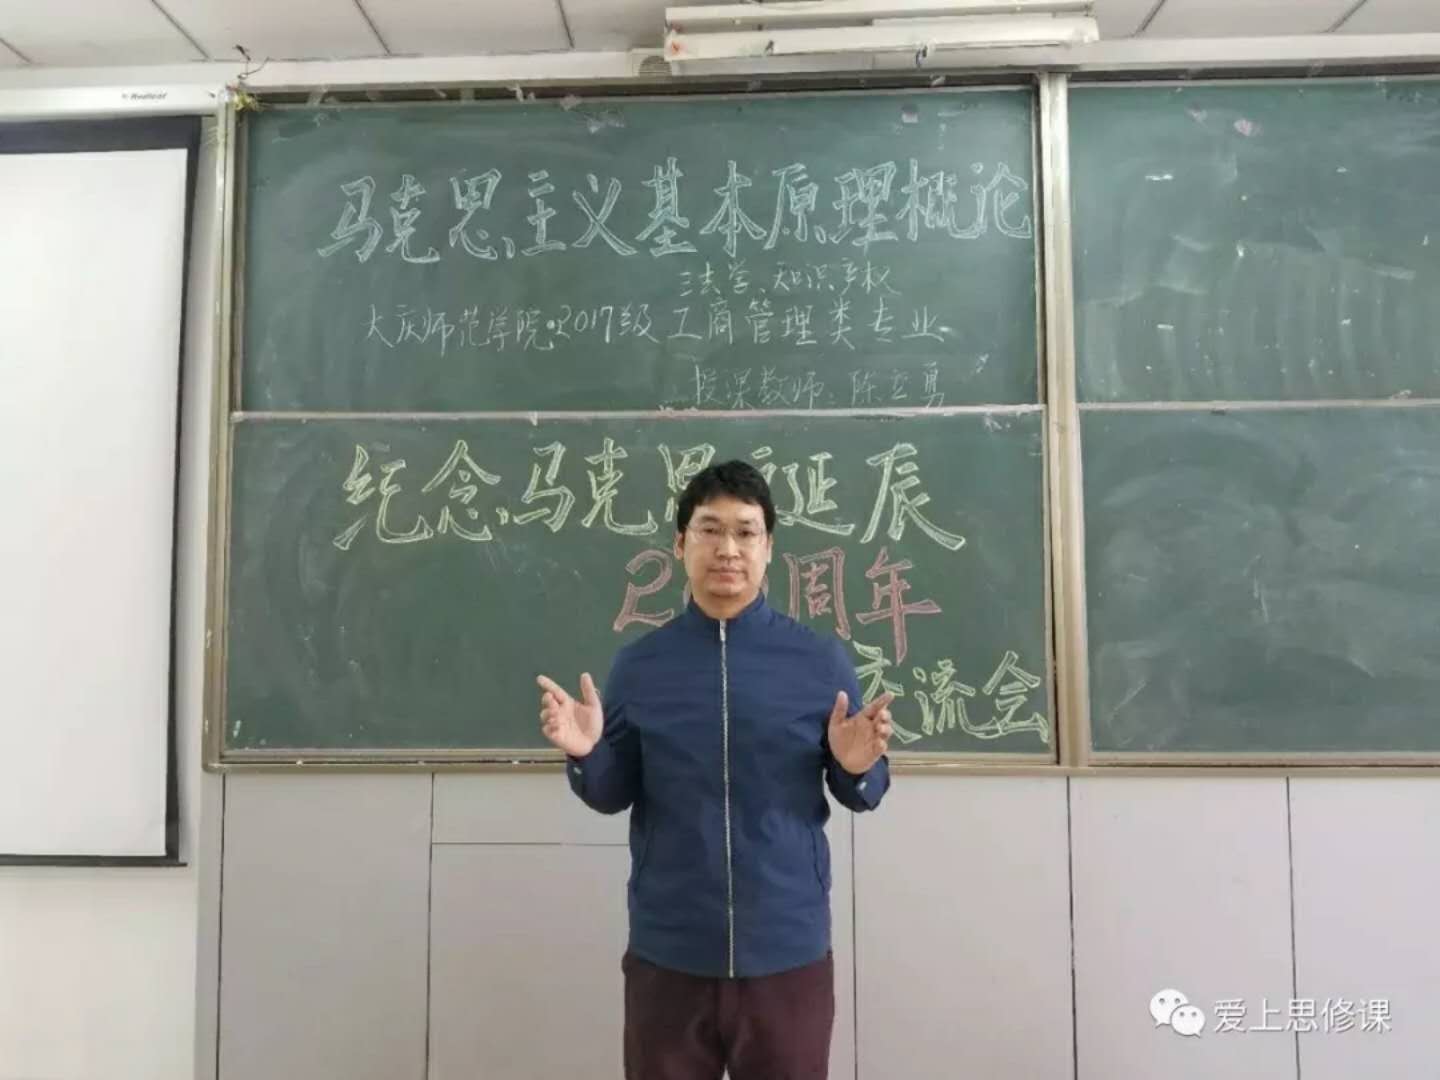 Redleaf
马克思主义基本原理概论
法学、知识产权
大庆师范学院·2017级工商管理类专业
授课教师：陈立勇
纪念马克思 延辰
2 周年
交流会
爱上思修课